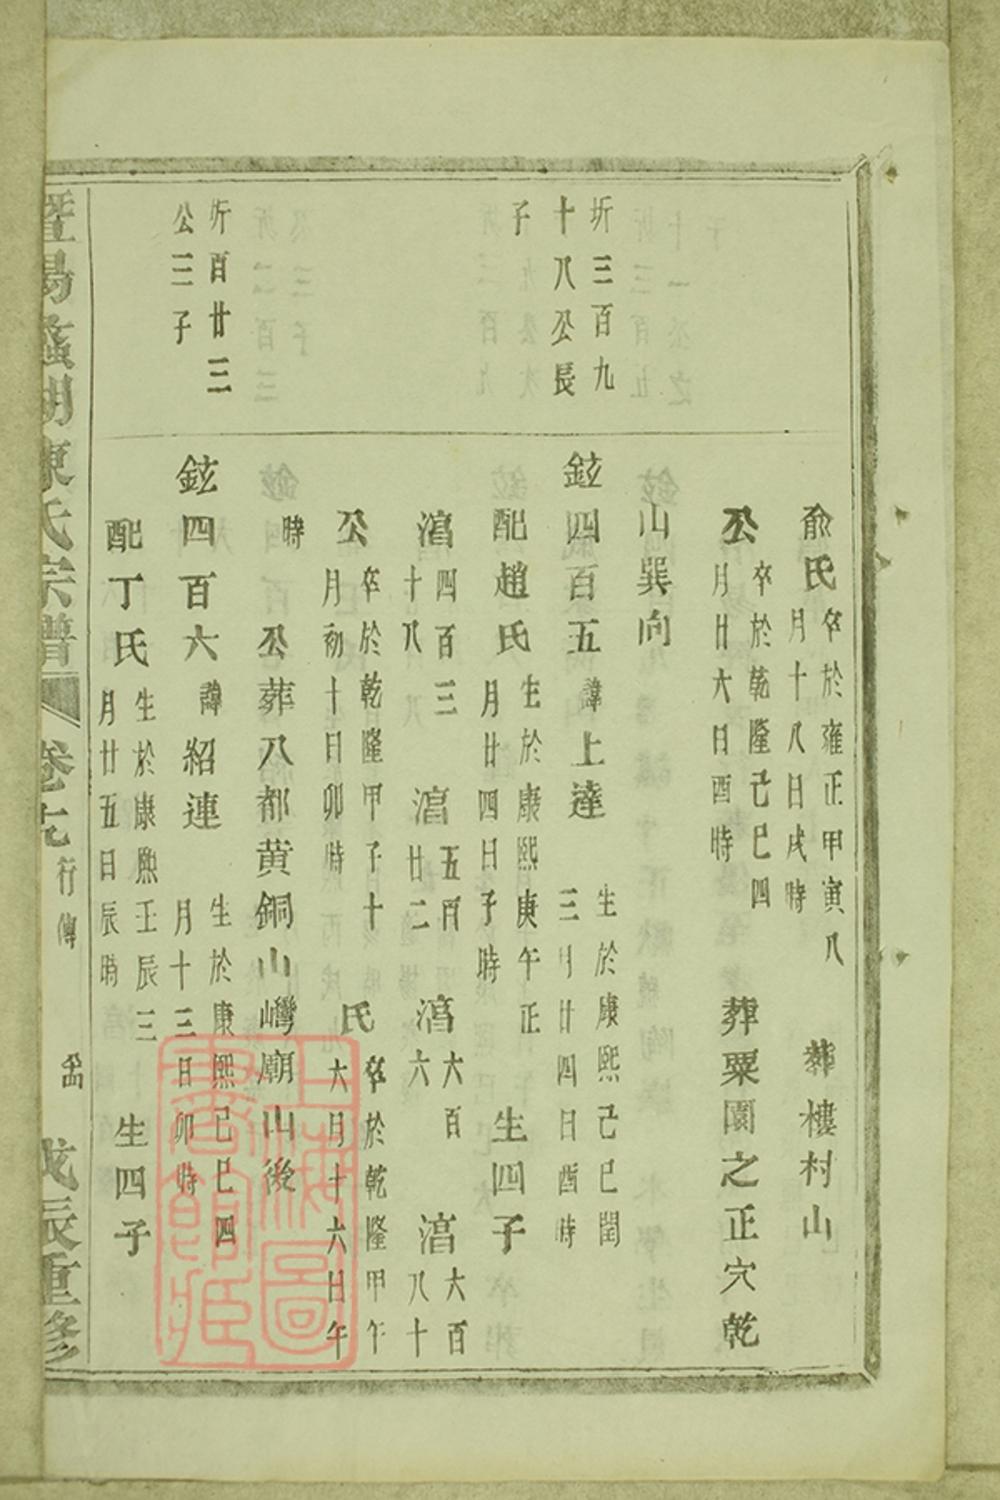 俞氏 卒於雍正甲寅八月十八日戌時 葬樓村山
公 卒於乾隆己巳四月廿六日酉時 葬粟園之正穴乾
山巽向
圻三百九十八公長子
鈜四百五 諱上達 生於康熙己巳閏三月廿四日酉時
配趙氏 生於康熙庚午正月廿四日子時 生四子
濸四百三十八 濸五百廿二 濸六百六 濸六百八十
公 卒於乾隆甲子十月初十日卯時 氏 卒於乾隆甲午六月十六日午時
公葬八都黄銅山灣廟山後
圻百廿三公三子
鈜四百六 諱紹連 生於康熙己巳四月十三日卯時
配丁氏 生於康熙壬辰三月廿五日辰時 生四子
暨陽 湖陳氏宗譜 卷 行傳 戊辰重修